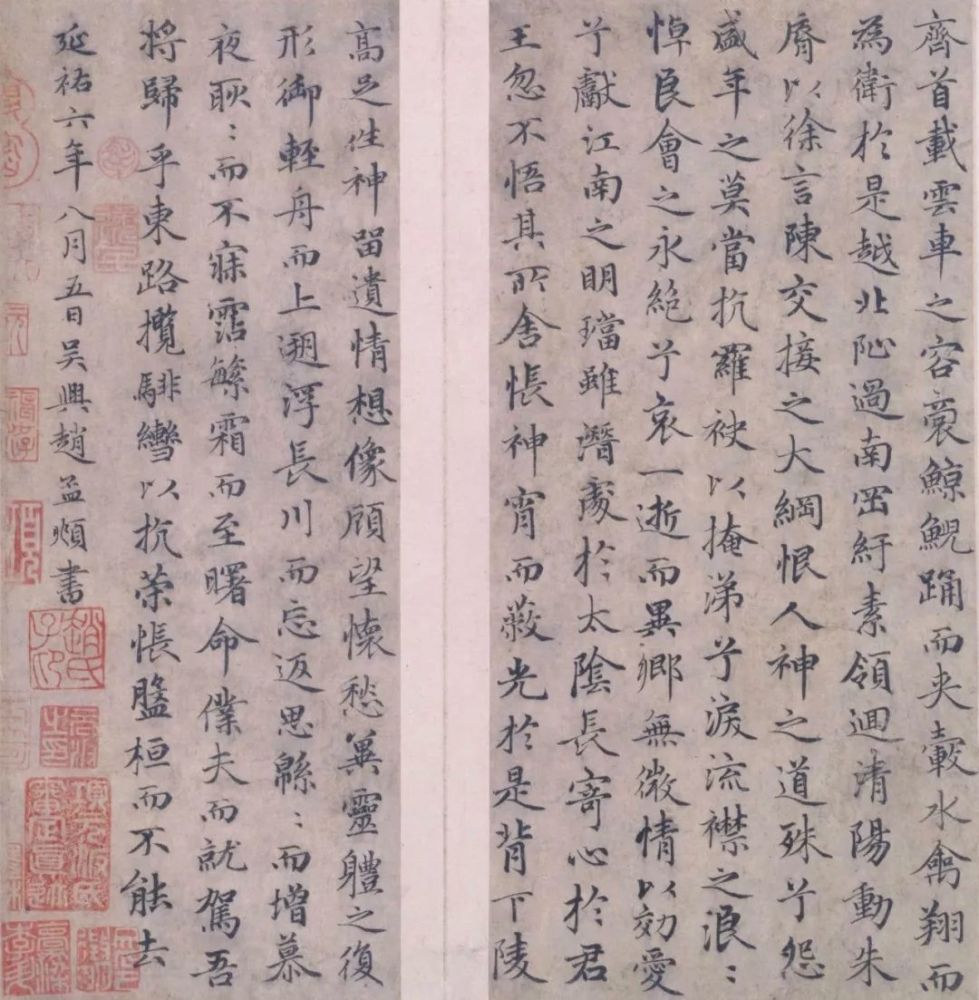 齊首載雲車之容裔鯨鯢踊而夾轂水禽翔而
為衛於是越北沚過南岡紆素領迴清陽動朱
脣以徐言陳交接之大綱恨人神之道殊兮怨
盛年之莫當抗羅袂以掩涕兮淚流襟之浪〻
悼良會之永絕兮哀一逝而異鄉無微情以効愛
兮獻江南之明璫雖潛處於太陰長寄心於君
王忽不悟其所舍悵神宵而蔽光於是背下陵
高足往神留遺情想像顧望懷愁冀靈體之復
形御輕舟而上遡浮長川而忘返思緜〻而增慕
夜耿〻而不寐霑繁霜而至曙命僕夫而就駕吾
將歸乎東路攬騑轡以抗策悵盤桓而不能去
延祐六年八月五日吳興趙孟頫書
趙氏子昂
項元汴氏審定真跡